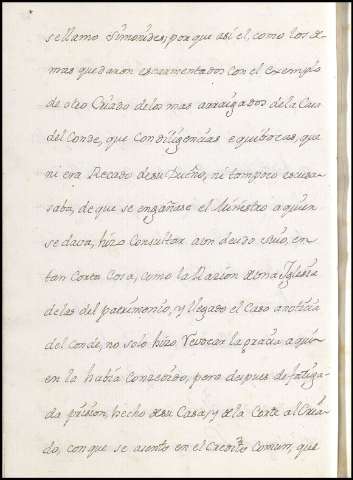 se llamo Simonides; porque asi el, como los de
mas quedaron escarmentados con el exemplo
de otro Criado de los mas arraigados de la Casa
del Conde, que con diligencias equibocas, que
ni era Recado de su Dueño, ni tampoco escusa
saba, de que se engañase el Ministro a quien
se dava, hizo Consultar a un deudo suio, en
tan corta Cosa, como la Razion de una Iglesia
de las del patrimonio, y llegado el Caso a noticia
del Conde, no solo hizo revocar la gracia a quien
en lo habia Concedido, pero despues de fatiga
da prision, hecho de su Casa, y de la Corte al Cria
do, con que se asento en el Credito Comun, que